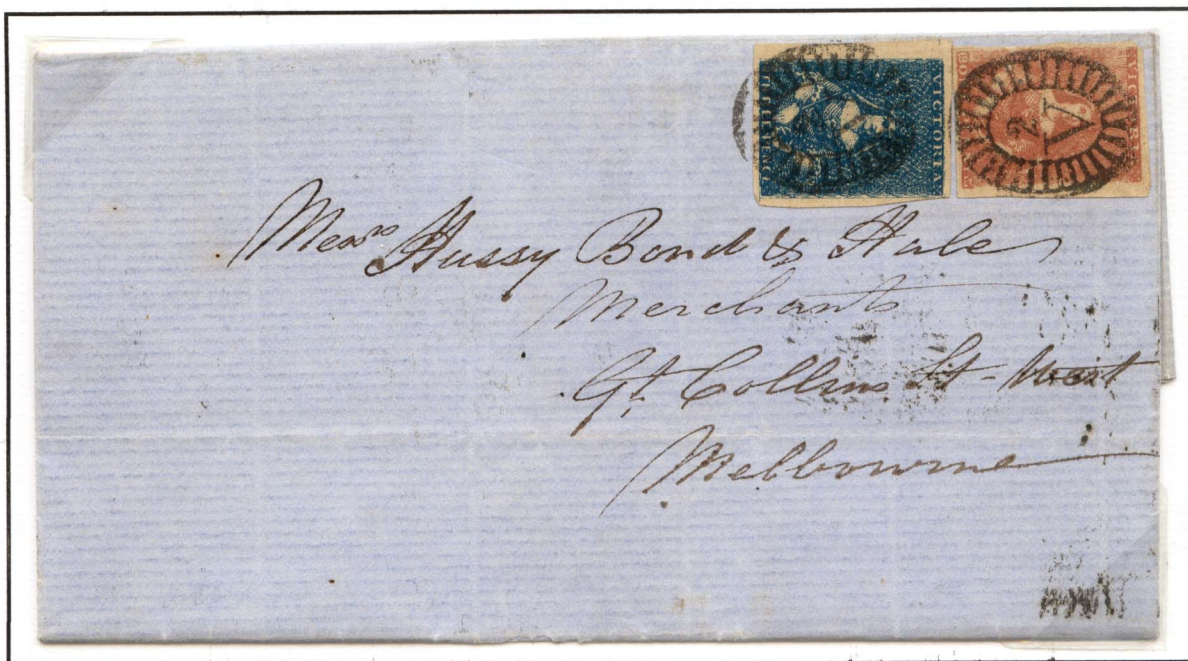 VICTORIA
2
V
Messrs Hussy Bond & Hale
Merchants
Gt. Collins St - West
Melbourne